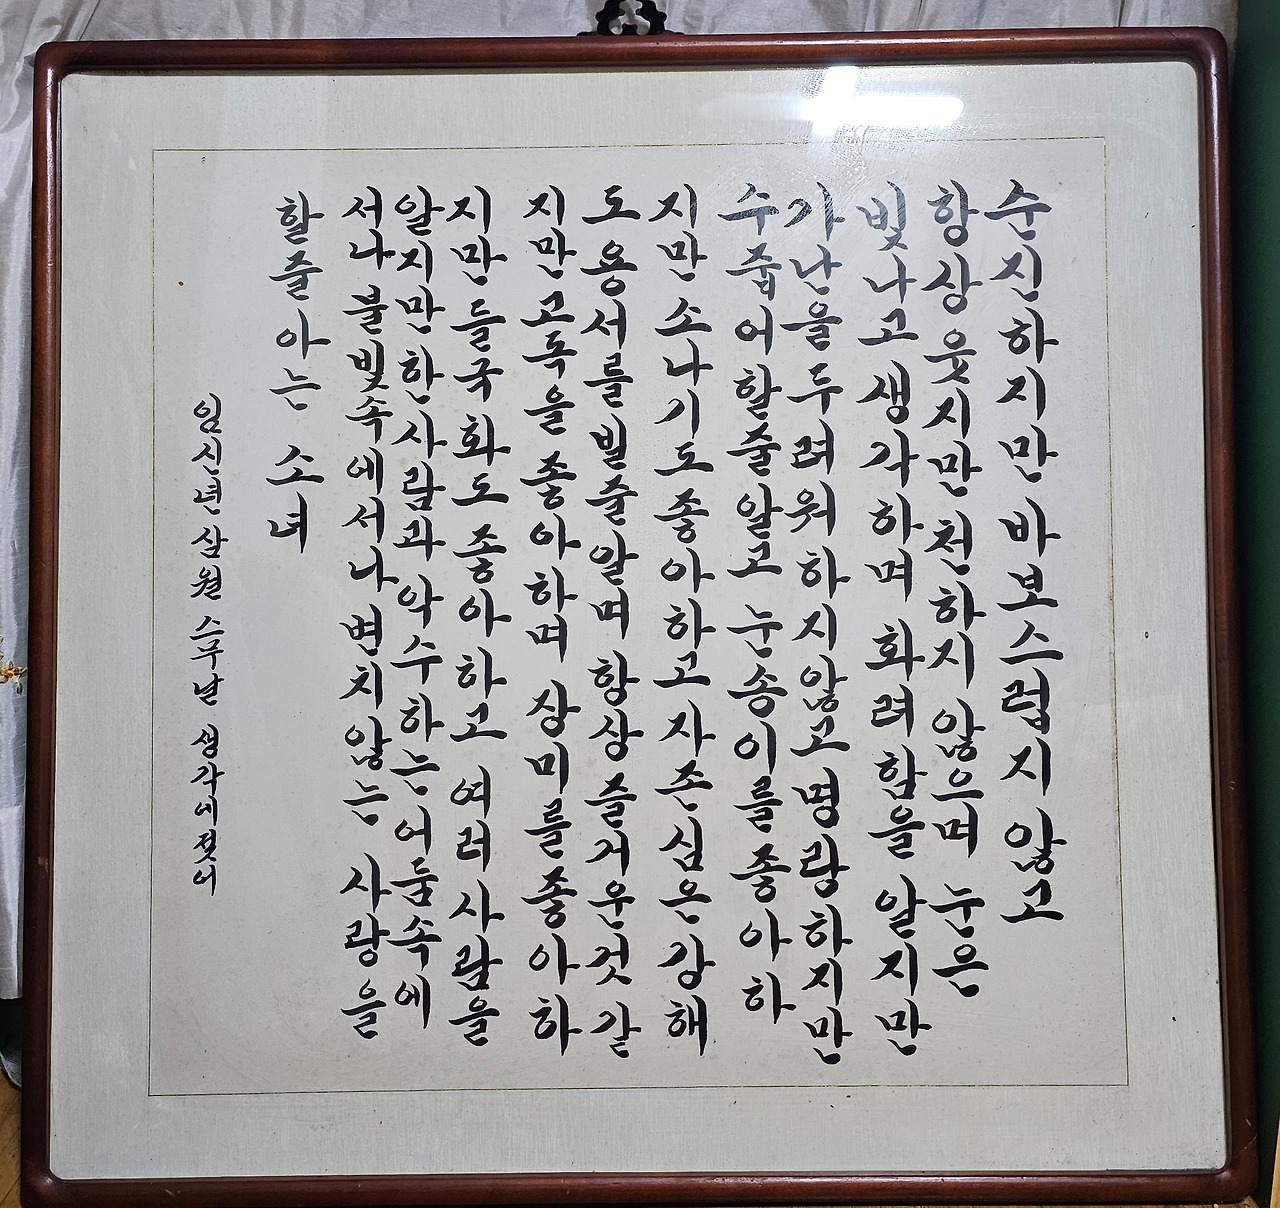 순진하지만 바보스럽지 않고
항상 웃지만 천하지 않으며 눈은
빛나고 생각하며 화려함을 알지만
가난을 두려워 하지 않고 명랑하지만
수줍어 할줄알고 눈송이를 좋아하
지만 소나기도 좋아하고 자존심은 강해
도 용서를 빌줄알며 항상 즐거운것 같
지만 고독을 좋아하며 장미를 좋아하
지만 들국화도 좋아하고 여러사람을
알지만 한사람과 악수하는 어둠속에
서나 불빛속에서나 변치않는 사랑을
할줄 아는 소녀
임신년 삼월 스무날 생각에 젖어